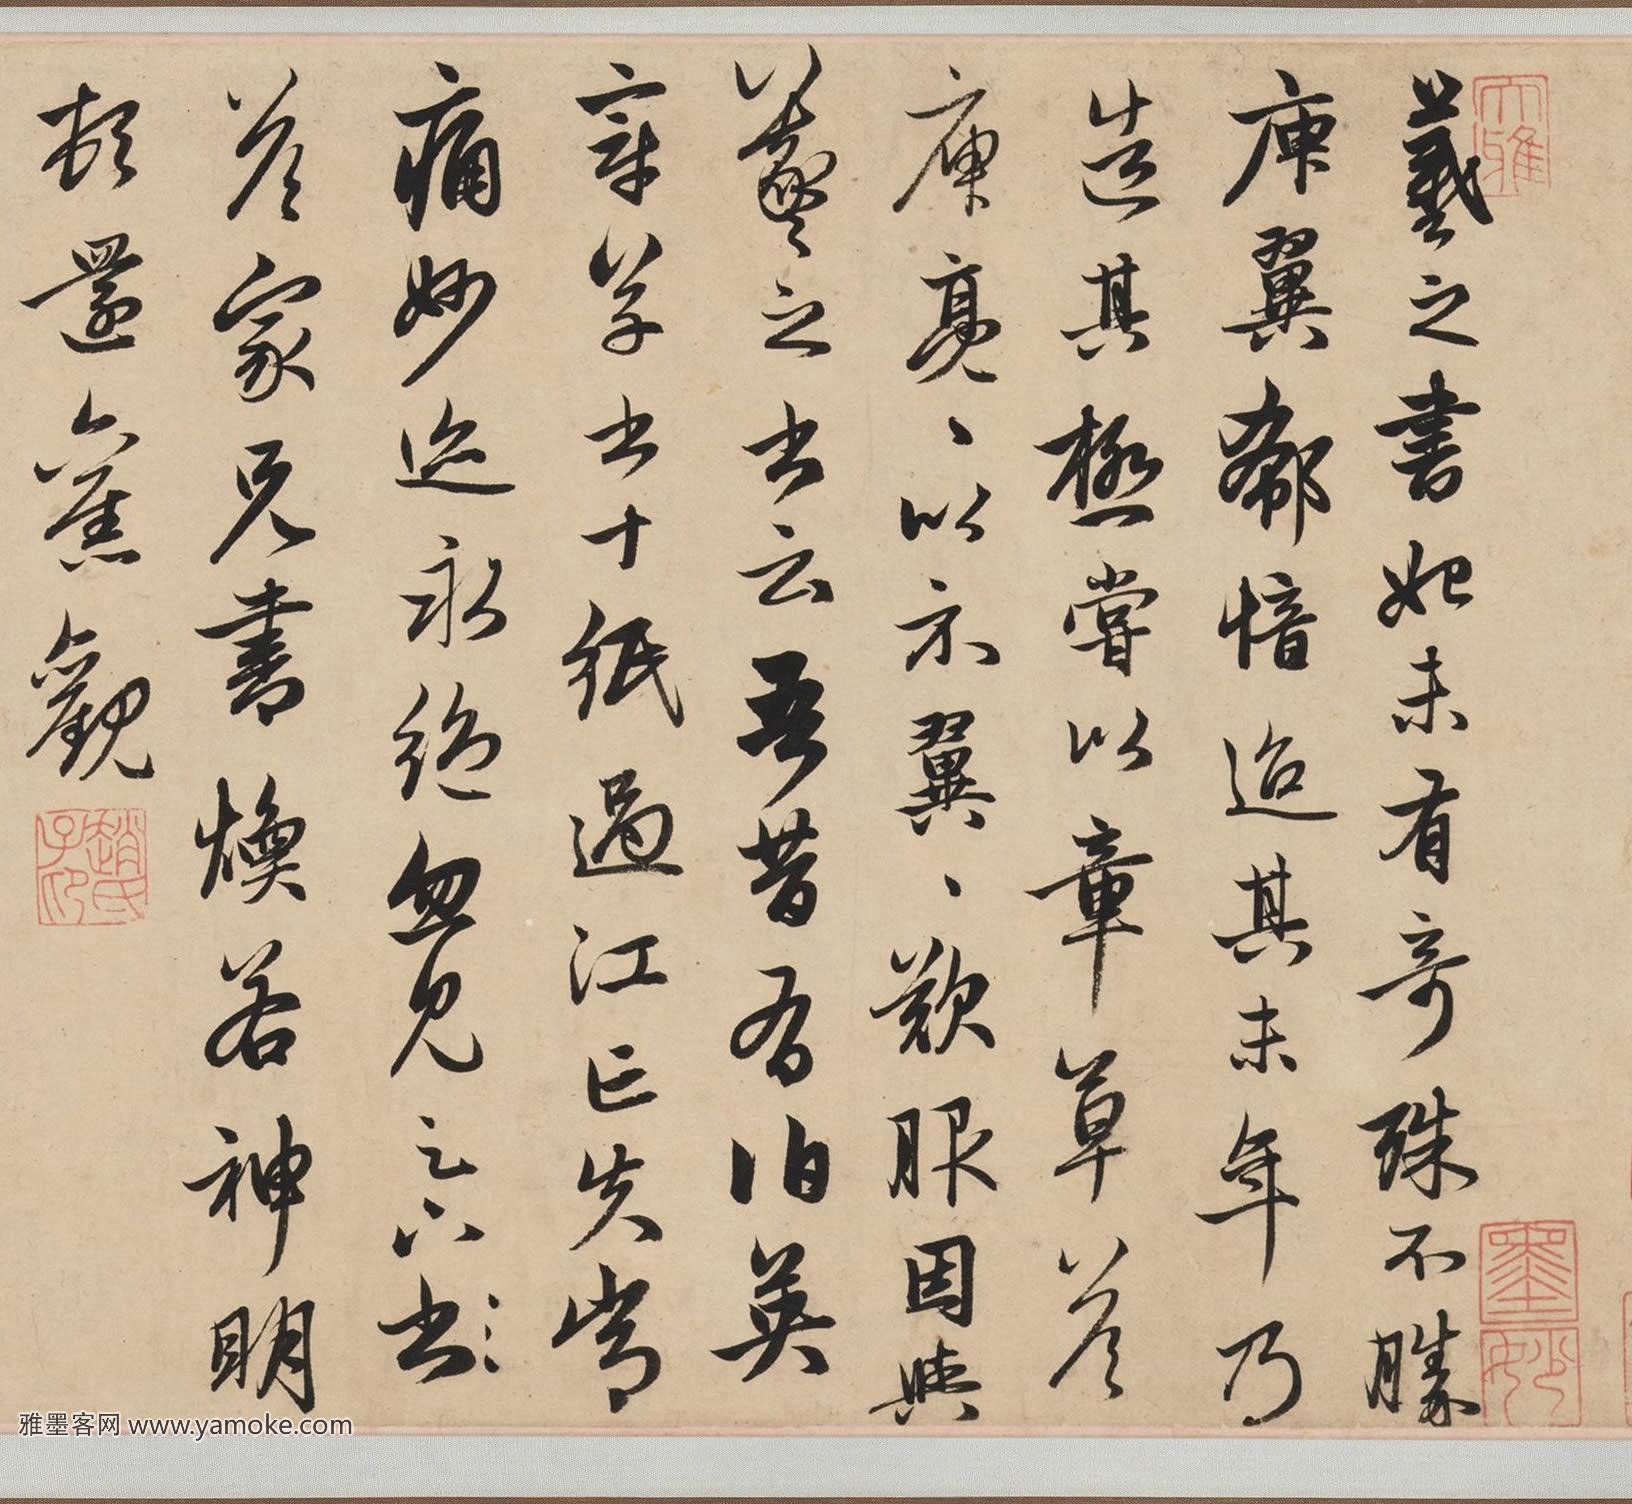 大雅
羲之書始未有奇殊不勝
庾翼郗愔迨其末年乃
造其極嘗以章草答
庾亮、以示翼、歎服因與
羲之書云吾昔有伯英
章草書十紙過江亡失常
痛妙迹永絕忽見足下書
答家兄書煥若神明
頓還舊觀
趙氏子昂
墨妙
雅墨客网 www.yamoke.com